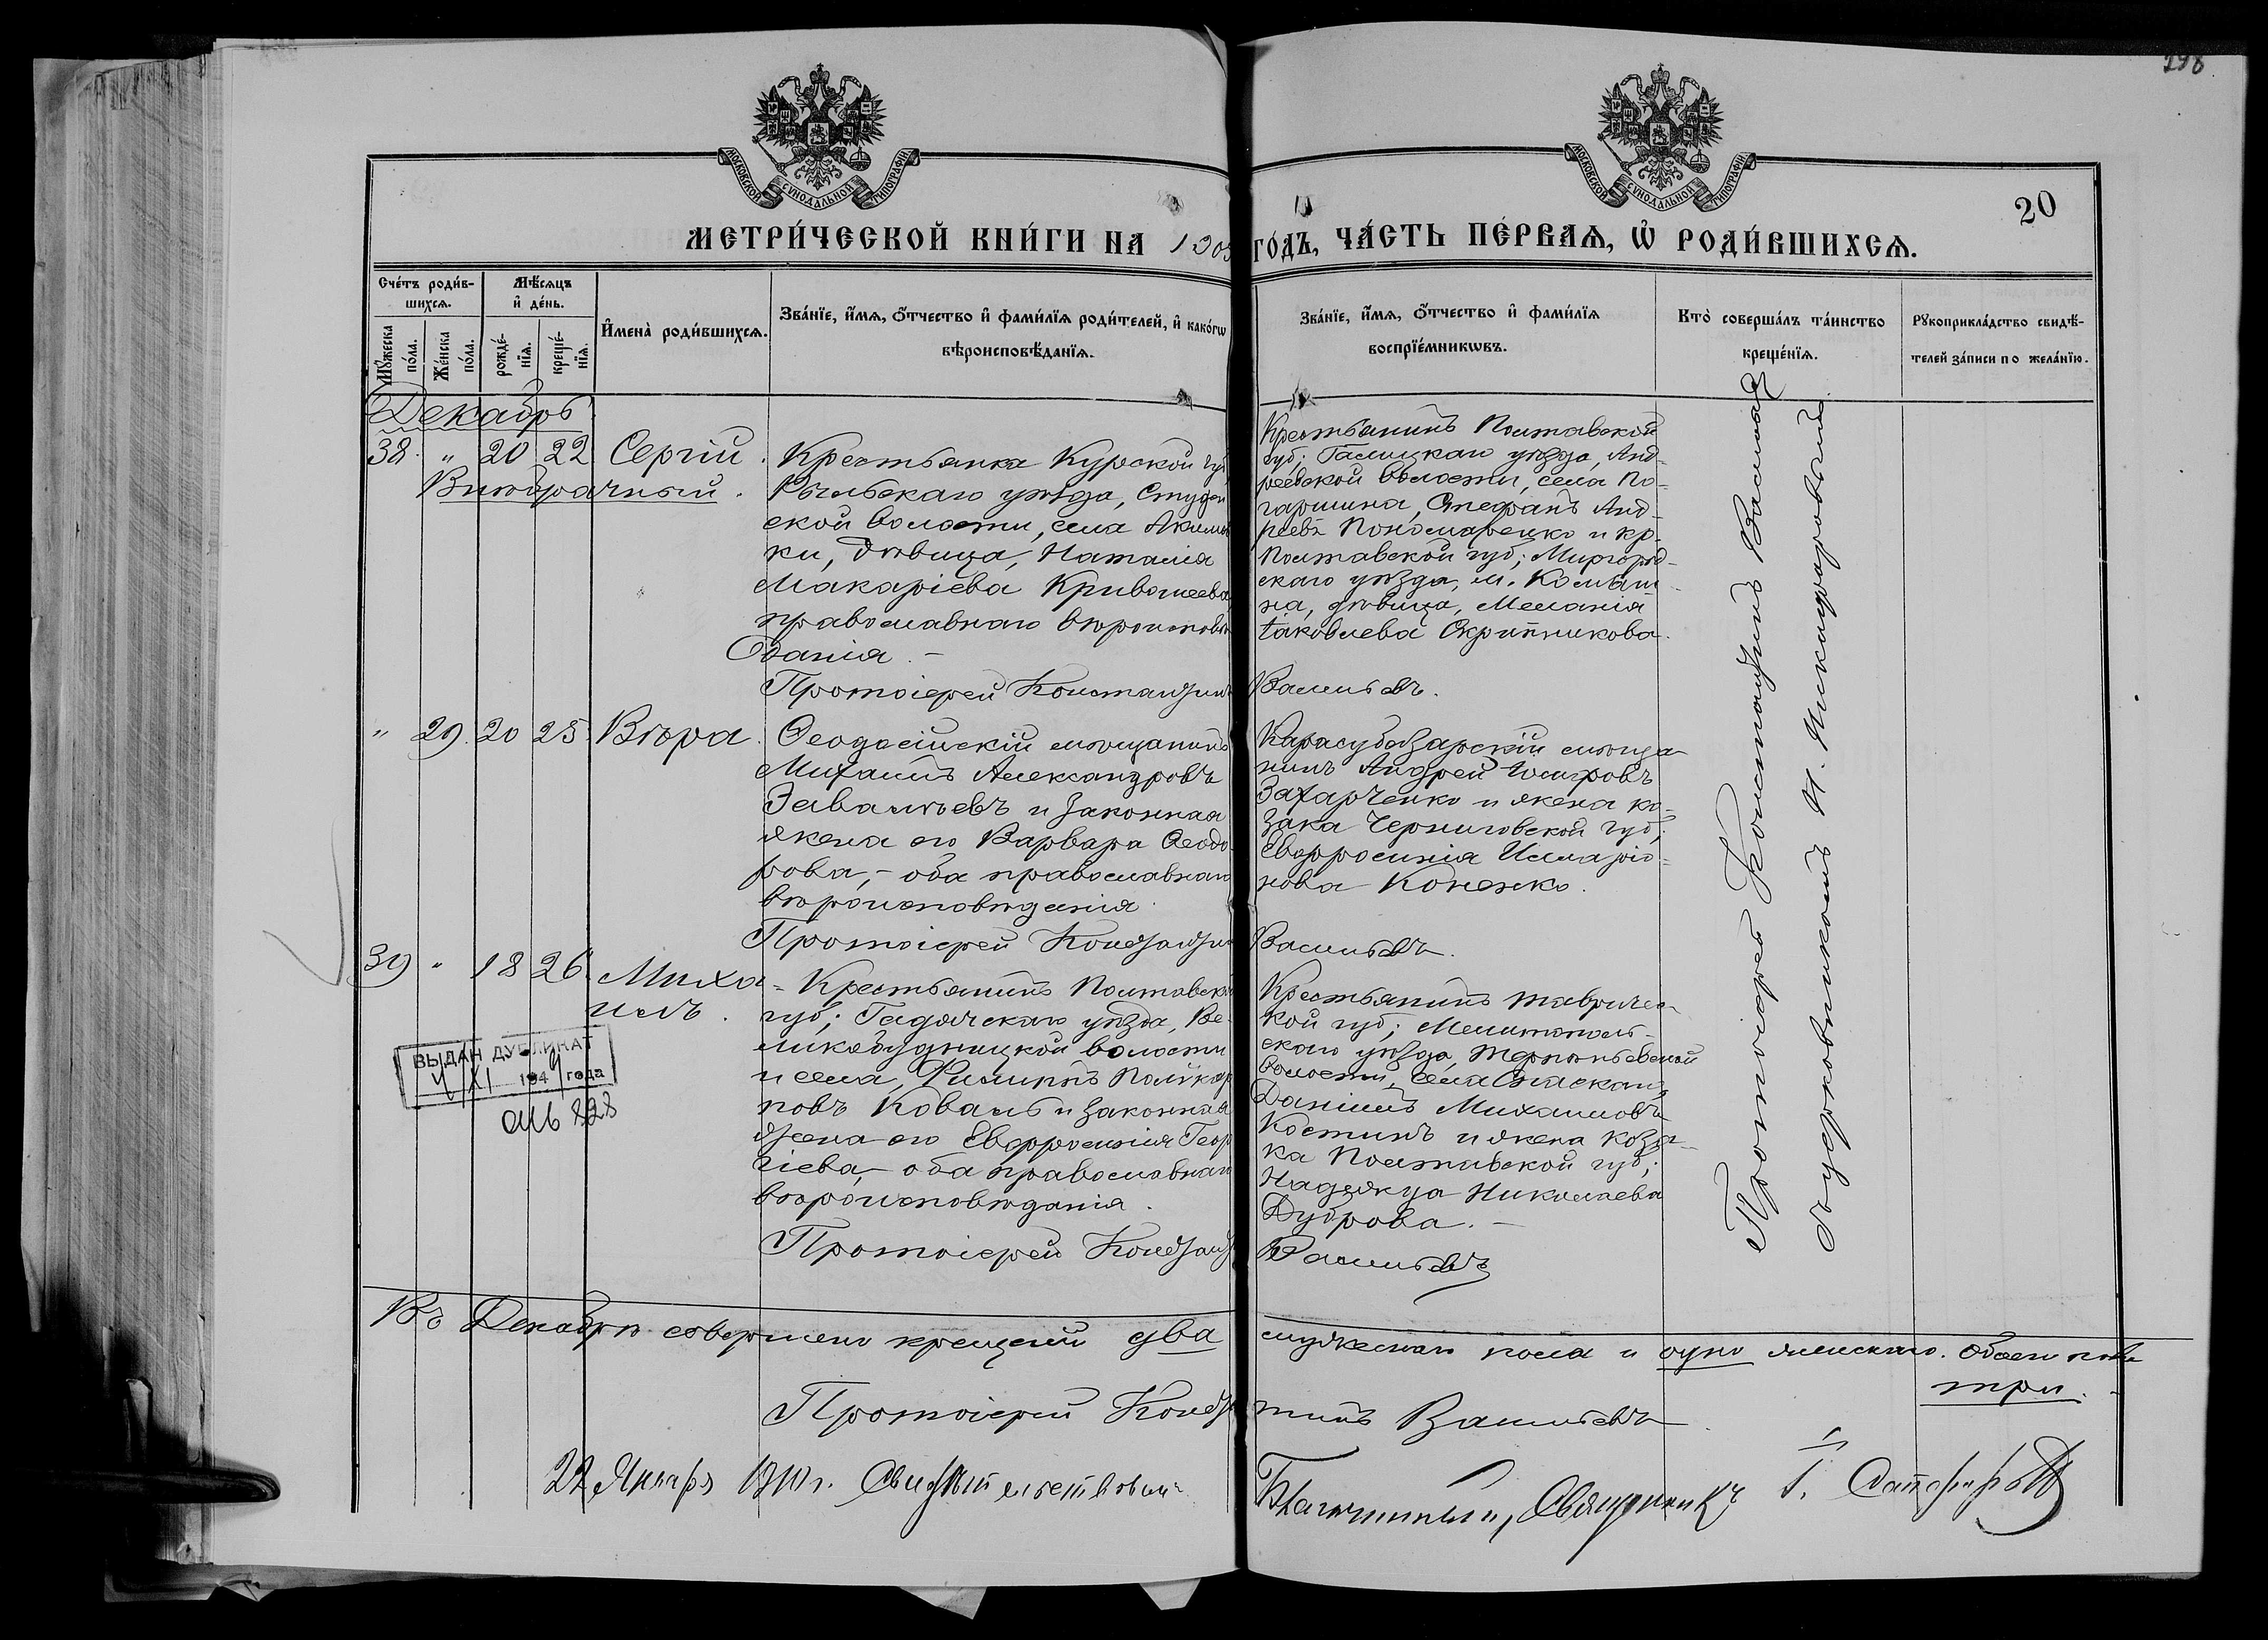 298
МОСКОВСКОЙ СѴНОДАЛЬНОЙ ТИПОГРАФІИ
МОСКОВСКОЙ СѴНОДАЛЬНОЙ ТИПОГРАФІИ
20
МЕТРИ́ЧЕСКОЙ КНИ́ГИ НА 1909
ГО́ДЪ, ЧА́СТЬ ПЕ́РВАѦ, Ѡ҆ РОДИ́ВШИХСѦ.
Сче́тъ роди́в-
шихсѧ.
Мѣ́сѧцъ
и҆ де́нь.
Мꙋ́жеска
по́ла.
Же́нска
по́ла.
рожде́-
нїѧ.
креще́-
нїѧ.
И҆мена̀ роди́вшихсѧ.
Зва́нїе, и҆́мѧ, ѻ҆́тчество и҆ фами́лїѧ роди́телей, и҆ како́гѡ
вѣроисповѣ́данїѧ.
Зва́нїе, и҆́мѧ, ѻ҆́тчество и҆ фами́лїѧ
воспрїе́мникѡвъ.
Кто̀ соверша́лъ та́инство
креще́нїѧ.
Рꙋкоприкла́дство свидѣ́-
телей за́писи по жела́нїю.
Декабрь
38. " 20 22 Сергій.
Внѣбрачный.
Крестьянка Курской губ
Рыльскаго уѣзда, Студен
ской волости, села Акимов
ки, дѣвица, Наталія
Макаріева Кривошеева,
православнаго вѣроисповѣ
данія. –
Протоіерей Константинъ
Крестьянинъ Полтавской
губ; уѣзда, Анд-
реевской волости, села По-
гаршина, Стефанъ Анд-
реевъ Пономаренко и кр-
Полтавской губ; Миргород-
скаго уѣзда, м. Комыш-
на, дѣвица, Меланія
Іаковлева Скрипникова.
Васильевъ.
" 29. 20 25 Вѣра.
Ѳеодосійскій мѣщанинъ
Михаилъ Александровъ
Завалѣевъ и законная
жена его Варвара Ѳеодо
рова, – оба православнаго
вѣроисповѣданія.
Протоіерей Константинъ
Карасубазарскій мѣща-
нинъ Андрей
Захарченко и жена ко-
зака Черниговской губ;
Евфросинія Илларіо-
нова Коненко.
Васильевъ.
39 " 18 26. Миха-
илъ.
Крестьянинъ Полтавской
губ; Гадячскаго уѣзда, Ве-
ликобудницкой волости
и села, Филиппъ Поликар
повъ Коваль и законная
жена его Евфросинія Геор
гіева, – оба православнаго
вѣроисповѣданія.
Протоіерей Константинъ
Крестьянинъ Тавричес-
кой губ; Мелитополь-
скаго уѣзда, Терпѣньевской
волости, села Спаскаго,
Даніилъ Михаиловъ
Костинъ и жена коза-
ка Полтавской губ;
Надежда Николаева
Дуброва. –
Васильевъ
Протоіерей Константинъ Васильевъ
съ церковникомъ Н. Никифоровымъ.
ВЫДАН ДУБЛИКАТ
4/XI 1949 года
828
Въ Декабрѣ совершено крещеній два
мужескаго пола и одно женскаго. Обоего пола
три.
Протоіерей Констан
тинъ Васильевъ
22 Января 1910 г. Свидѣтельствовалъ
Благочинный, Священникъ І.